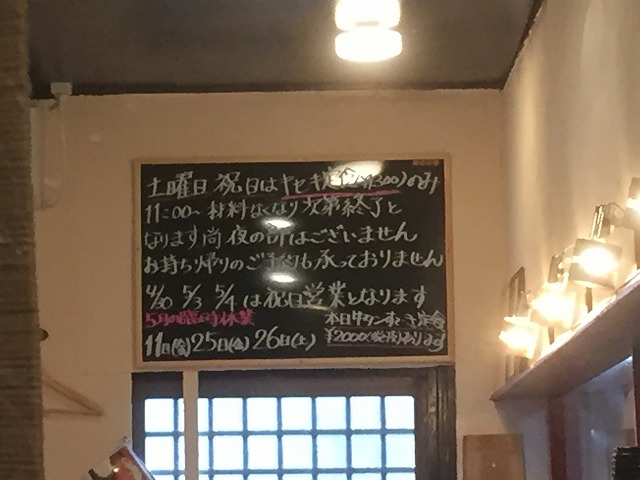 土曜日祝日はキセキ定食(¥1300)のみ
11:00~材料なくなり次第終了と
なります尚夜の部はございません
お持ち帰りのご予約も承っておりません
4/30 5/3 5/4は祝日営業となります
5月の臨時休業
11日(金)25日(金)26日(土)
本日牛タンすじ定食
¥2000(税抜)あります